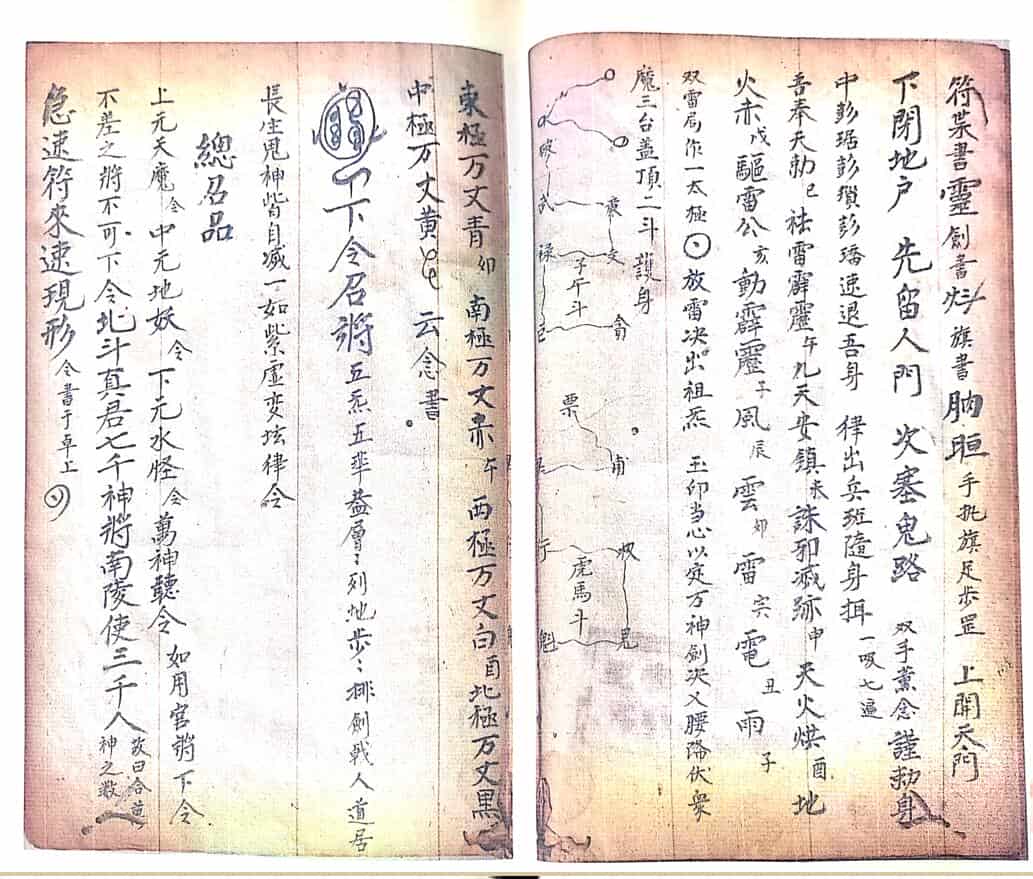 符某書靈劍書 旗書 手执旗足步罡 上開天門
下閉地户 先留人門 次塞鬼路 双手薰念謹勅身
中彭琚彭瓆彭矯速退吾身 律出兵班隨身揖 一吸七遍
吾奉天勅巳 祛雷霹靂午 九天安鎮未 誅邪滅跡申 天火烘酉 地
火赤戊 驅雷公亥 動霹靂子 風辰 雲卯 雷宾 電丑 雨子
双雷局作一太極 放雷决出祖炁 玉印当心以定万神劍决乂腰降伏衆
魔三台盖頂二斗護身
子午斗
虎馬斗
東極万丈青卯 南極万丈赤午 西極万丈白酉 北極万丈黑
中極万丈黄 云念書。
下令召將 五炁五 益層〻列地步〻排劍戟人道居
長生鬼神皆自滅一如紫虚变坛律令
總召品
上元天魔令 中元地妖令 下元水怪令 萬神聽令 如用官將下令
不差之將不可下令北斗真君七千神將南陵使三千人 故曰合萬神之数
急速符來速現形 令書于卓上